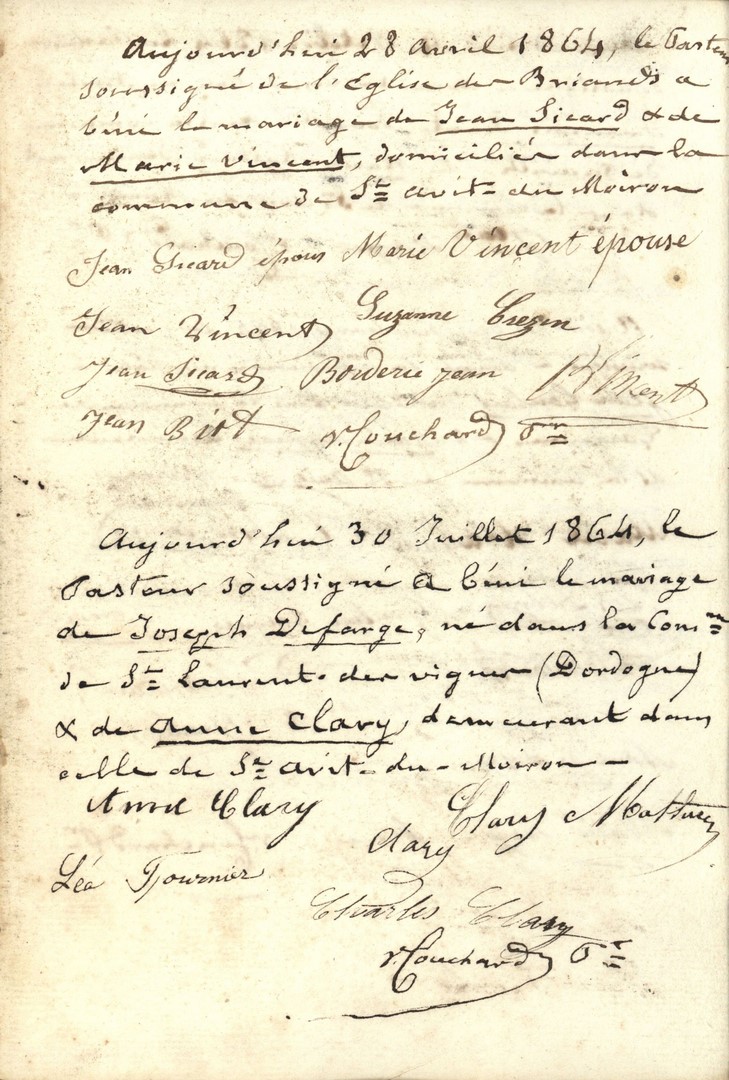 Aujourd'hui 28 avril 1864, le Pasteur
soussigné de l'Eglise des Briands a
béni le mariage de Jean Sicard & de
Marie Vincent, domiciliés dans la
commune de St avit-du Moiron
Jean Sicard époux Marie Vincent épouse
Jean Vincent Suzanne
Jean Sicard Borderie jean
Jean Couchard
Aujourd'hui 30 Juillet 1864, le
Pasteur soussigné a béni le mariage
de Joseph Defarge, né dans la Comne
de St Laurent-des vignes (Dordogne)
& de anne Clary, demeurant dans
celle de St avit-du-Moiron-
Anne Clary
Clary
Clary
Léa Fournier
Charles Clary
Couchard Pr